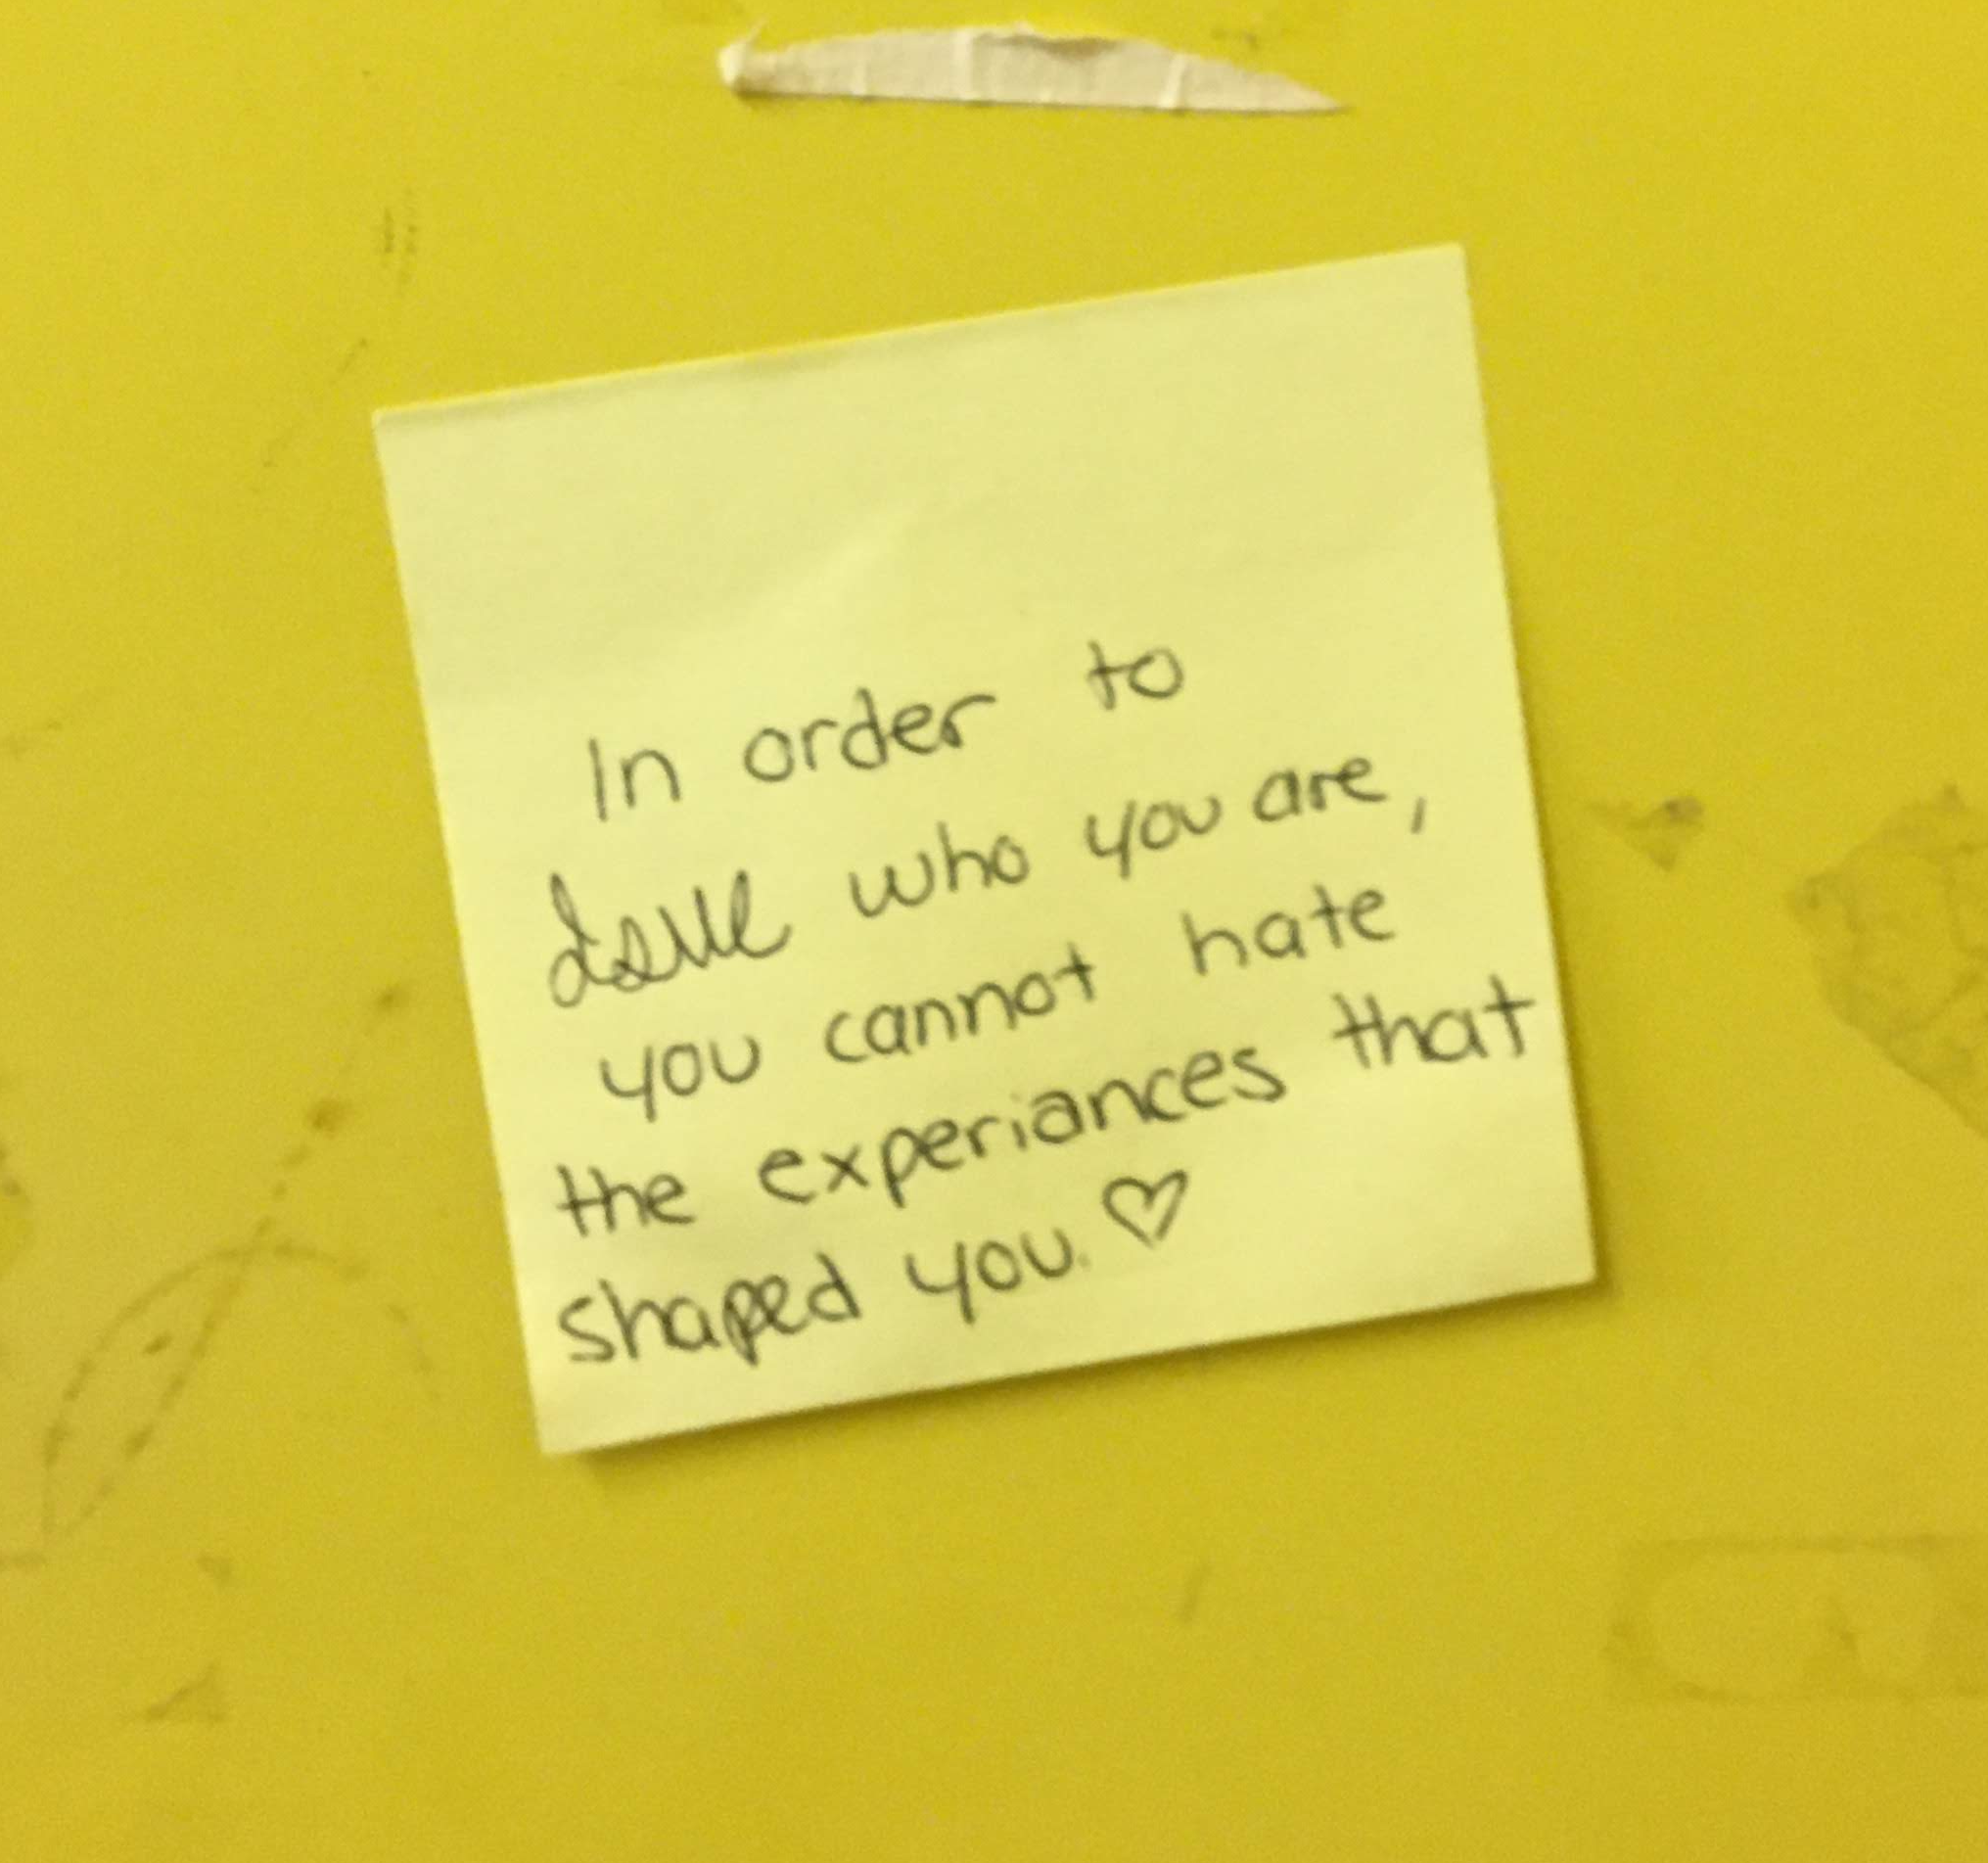 In order to
Love who you are,
you cannot hate
the experiances that
shaped you. ♡